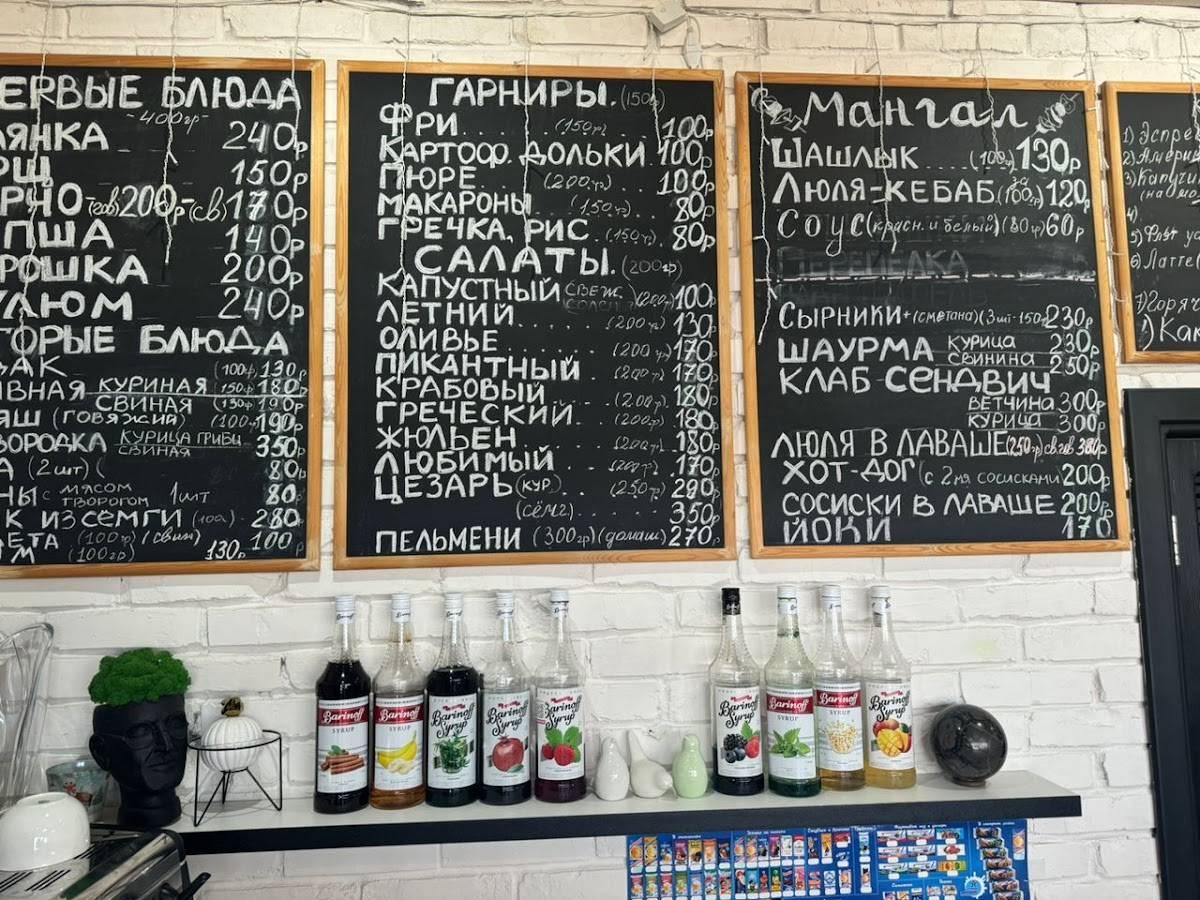 ЕРВЫЕ БЛЮДА
-400гр-
ЯНКА 240р
РЩ 150р
РЧО -(гов)200р-(св)170р
ПША 140р
РОШКА 200р
УЛЮМ 240р
ТОРЫЕ БЛЮДА
АК (100г) 130р
ИВНАЯ КУРИНАЯ (150г) 180р
СВИНАЯ (150г) 190р
ЯШ (ГОВЯЖИЙ) (100г) 190р
ВОРОДКА КУРИЦА ГРИБЫ
СВИНАЯ 350р
А (2 шт) 80р
НЫ С МЯСОМ
ТВОРОГОМ 1шт 80р
К ИЗ СЁМГИ (100) 280р
ЛЕТА (100гр) (свин) 100р
(100гр) 130р
ГАРНИРЫ. (150р)
ФРИ (150г) 100р
КАРТОФ. ДОЛЬКИ 100р
ПЮРЕ (200гр) 100р
МАКАРОНЫ (150гр) 80р
ГРЕЧКА, РИС (150гр) 80р
САЛАТЫ. (200гр)
КАПУСТНЫЙ СВЕЖ. (200гр) 100р
ЛЕТНИЙ (200гр) 130р
ОЛИВЬЕ (200гр) 170р
ПИКАНТНЫЙ (200гр) 170р
КРАБОВЫЙ (200гр) 180р
ГРЕЧЕСКИЙ (200гр) 180р
ЖЮЛЬЕН (200гр) 180р
ЛЮБИМЫЙ (200гр) 170р
ЦЕЗАРЬ (КУР.) (250гр) 290р
(СЁМГ.) 350р
ПЕЛЬМЕНИ (300гр) (домаш) 270р
Мангал
ШАШЛЫК (100г) 130р
ЛЮЛЯ-КЕБАБ (100г) 120р
СОУС (красн. и белый) (80гр) 60р
ПЕРЕПЕЛКА
СЫРНИКИ + (сметана) (3шт-150г) 230р
ШАУРМА КУРИЦА 230р
СВИНИНА 250р
КЛАБ СЕНДВИЧ
ВЕТЧИНА 300р
КУРИЦА 300р
ЛЮЛЯ В ЛАВАШЕ (250гр) 380р
ХОТ-ДОГ (С 2МЯ СОСИСКАМИ) 200р
СОСИСКИ В ЛАВАШЕ 200р
ЙОКИ 170
1) Эспре
2) Амери
3) Капучин
4)
5) Флэт уа
6) Латте
7) Горяч
) Как
Barinoff
SYRUP
Barinoff
SYRUP
Barinoff
Syrup
Barinoff
Syrup
Barinoff
Syrup
Barinoff
Syrup
Barinoff
SYRUP
Barinoff
SYRUP
Barinoff
Syrup